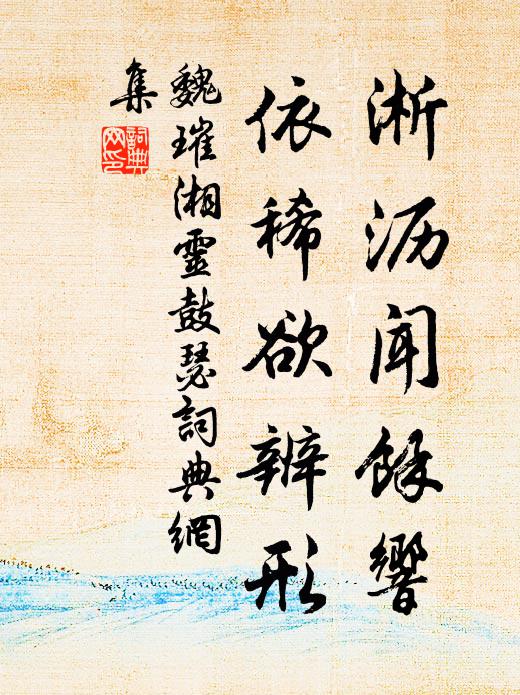 淅沥闻馀響
依稀欲辨形
魏璀湘靈鼓瑟詞典網
集
詞典网印